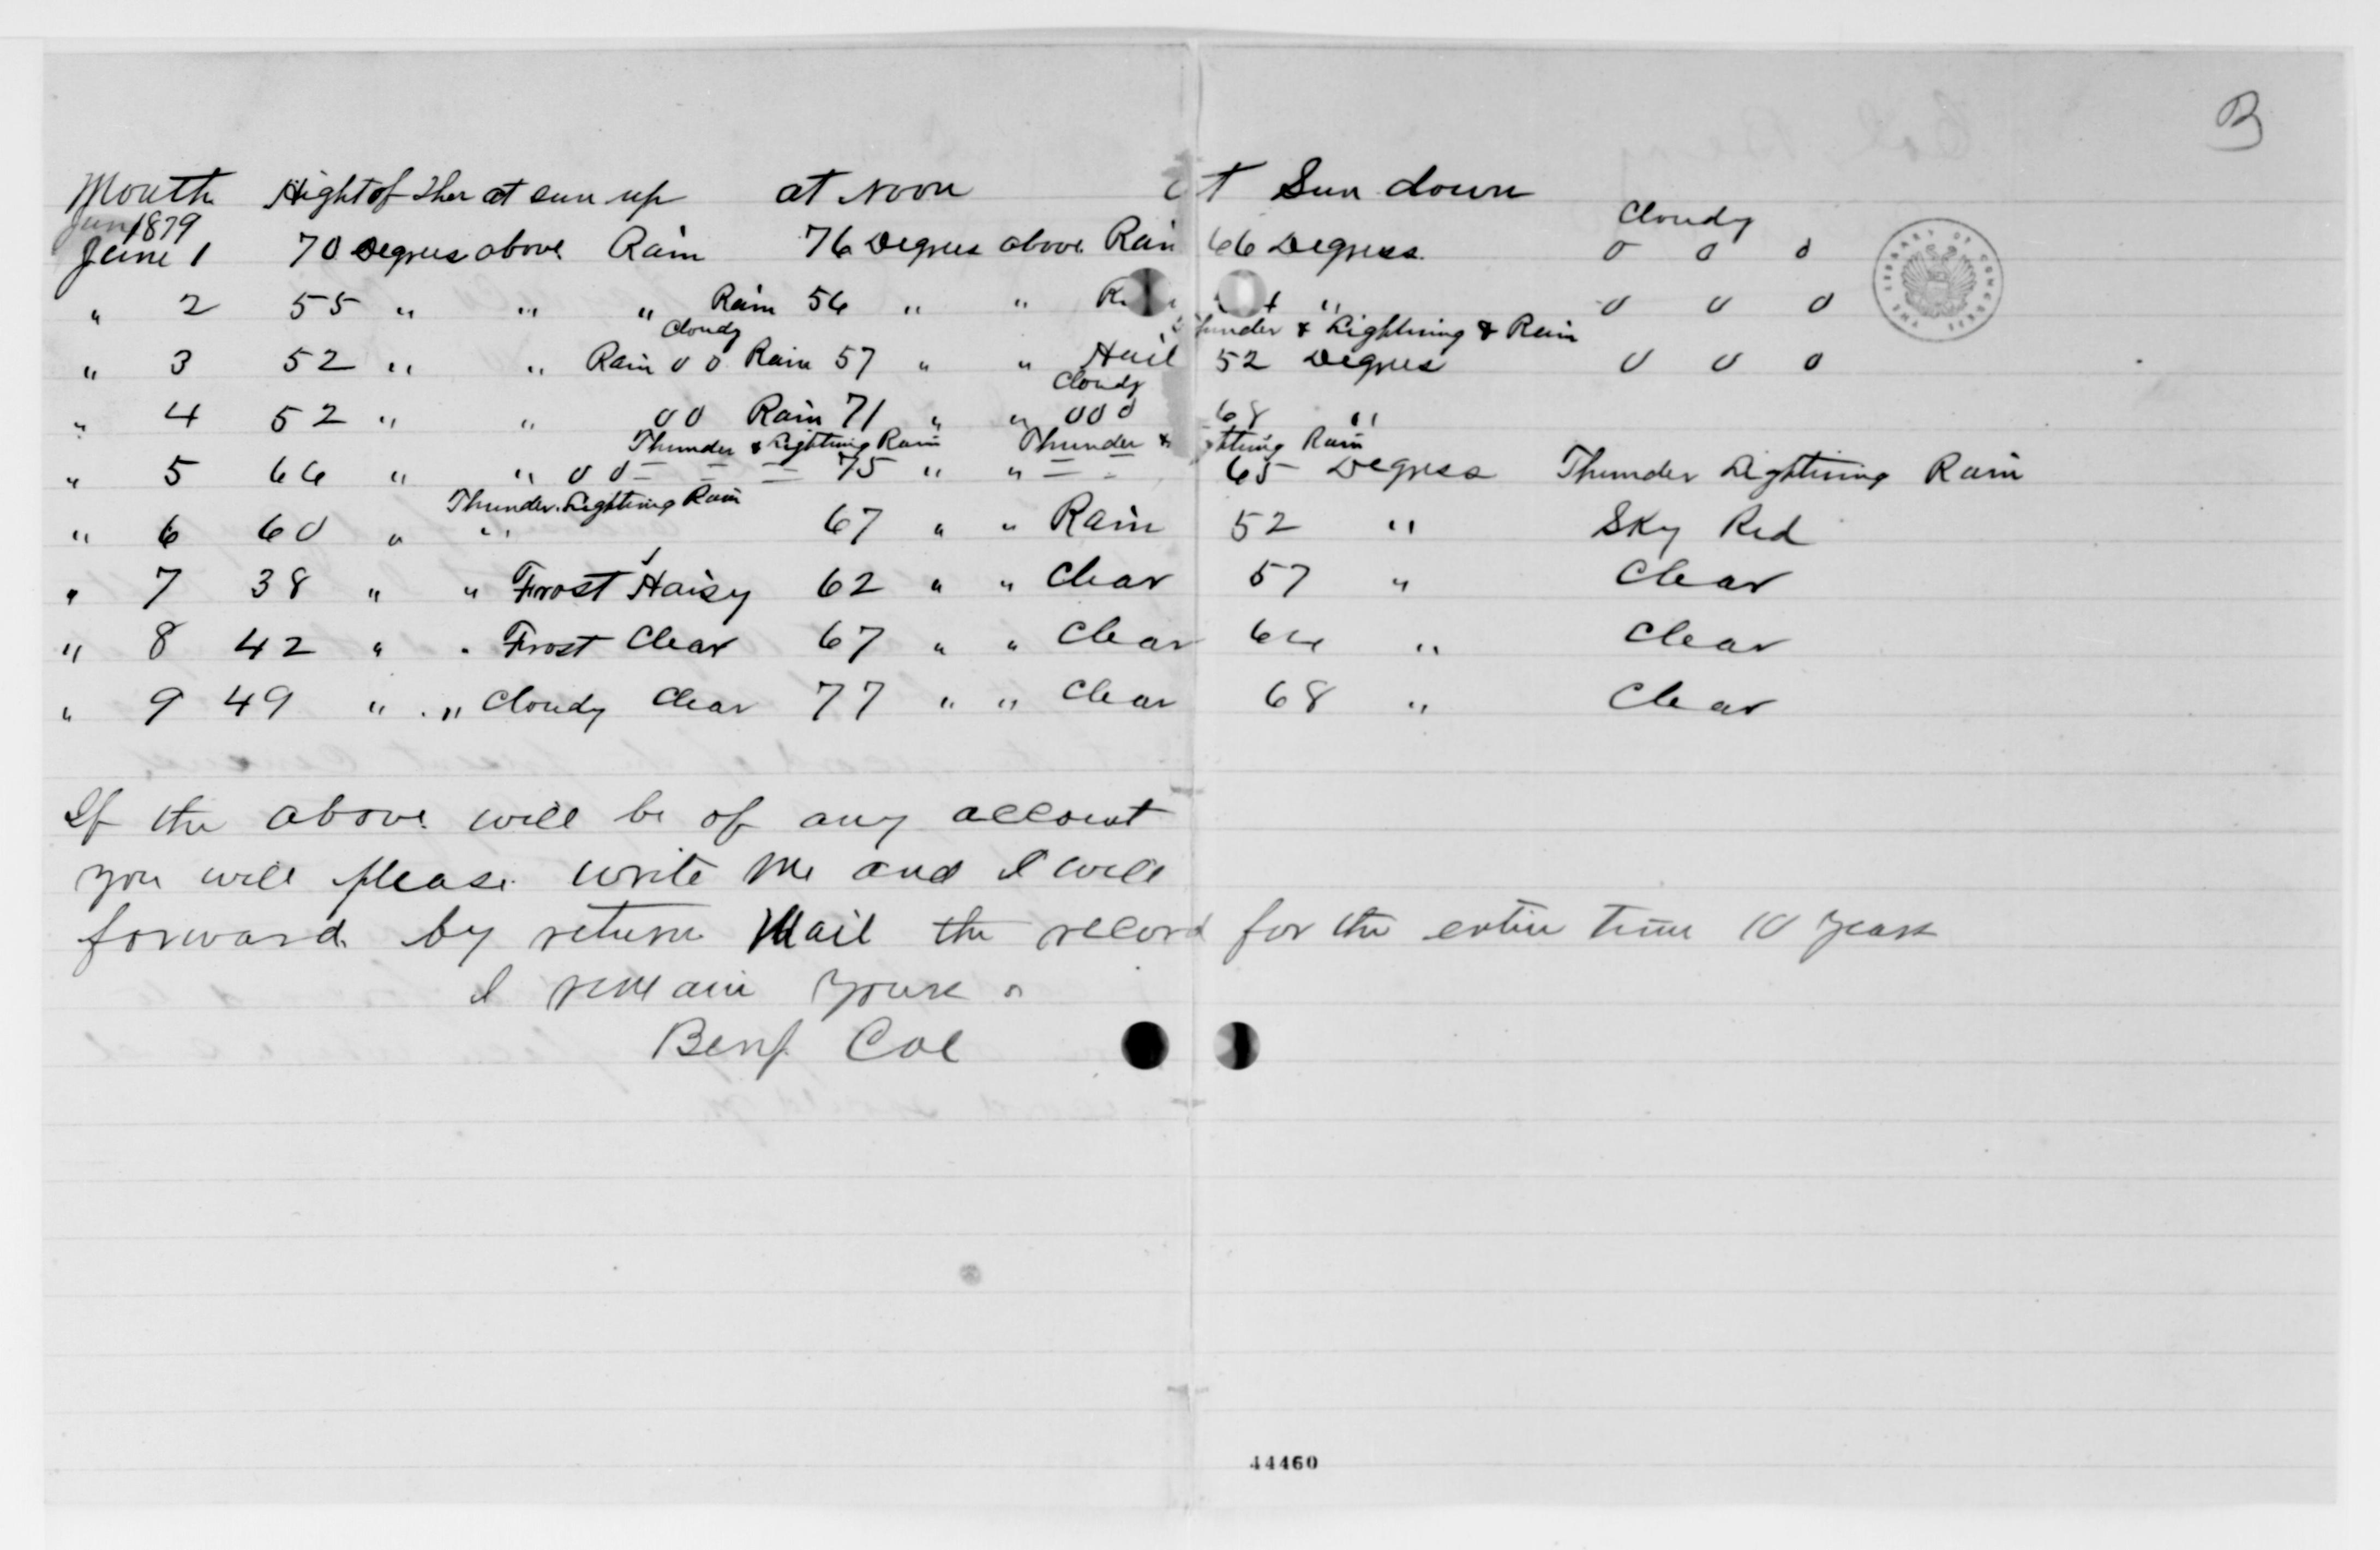 B
Month Hight of Ther at sun up at Noon at Sun down
Jun 1879 Cloudy
June 1 70 Degrees above Rain 76 Degrees above Rain 66 Degress 0 0 0
" 2 55 " " " Rain 56 " " " 0 0 0
Cloudy Thunder & Lightning & Rain
" 3 52 " " Rain 0 0 Rain 57 " " Hail 52 Degrees 0 0 0
Cloudy
" 4 52 " " 0 0 Rain 71 " " 0 0 0 68 "
Thunder & Lightning Rain Thunder & Lightning Rain
" 5 66 " " 0 0 — — — 75 " " — — 65 Degress Thunder Lightning Rain
Thunder Lightning Rain
" 6 60 " " 67 " " Rain 52 " Sky Red
" 7 38 " " Frost Haisy 62 " " Clear 57 " Clear
" 8 42 " " Frost Clear 67 " " Clear 64 " Clear
" 9 49 " " Cloudy Clear 77 " " Clear 68 " Clear
If the above will be of any account
you will please write me and I will
forward by return Mail the record for the entire time 10 years
I remain yours
Benj. Cole
THE LIBRARY OF CONGRESS
44460